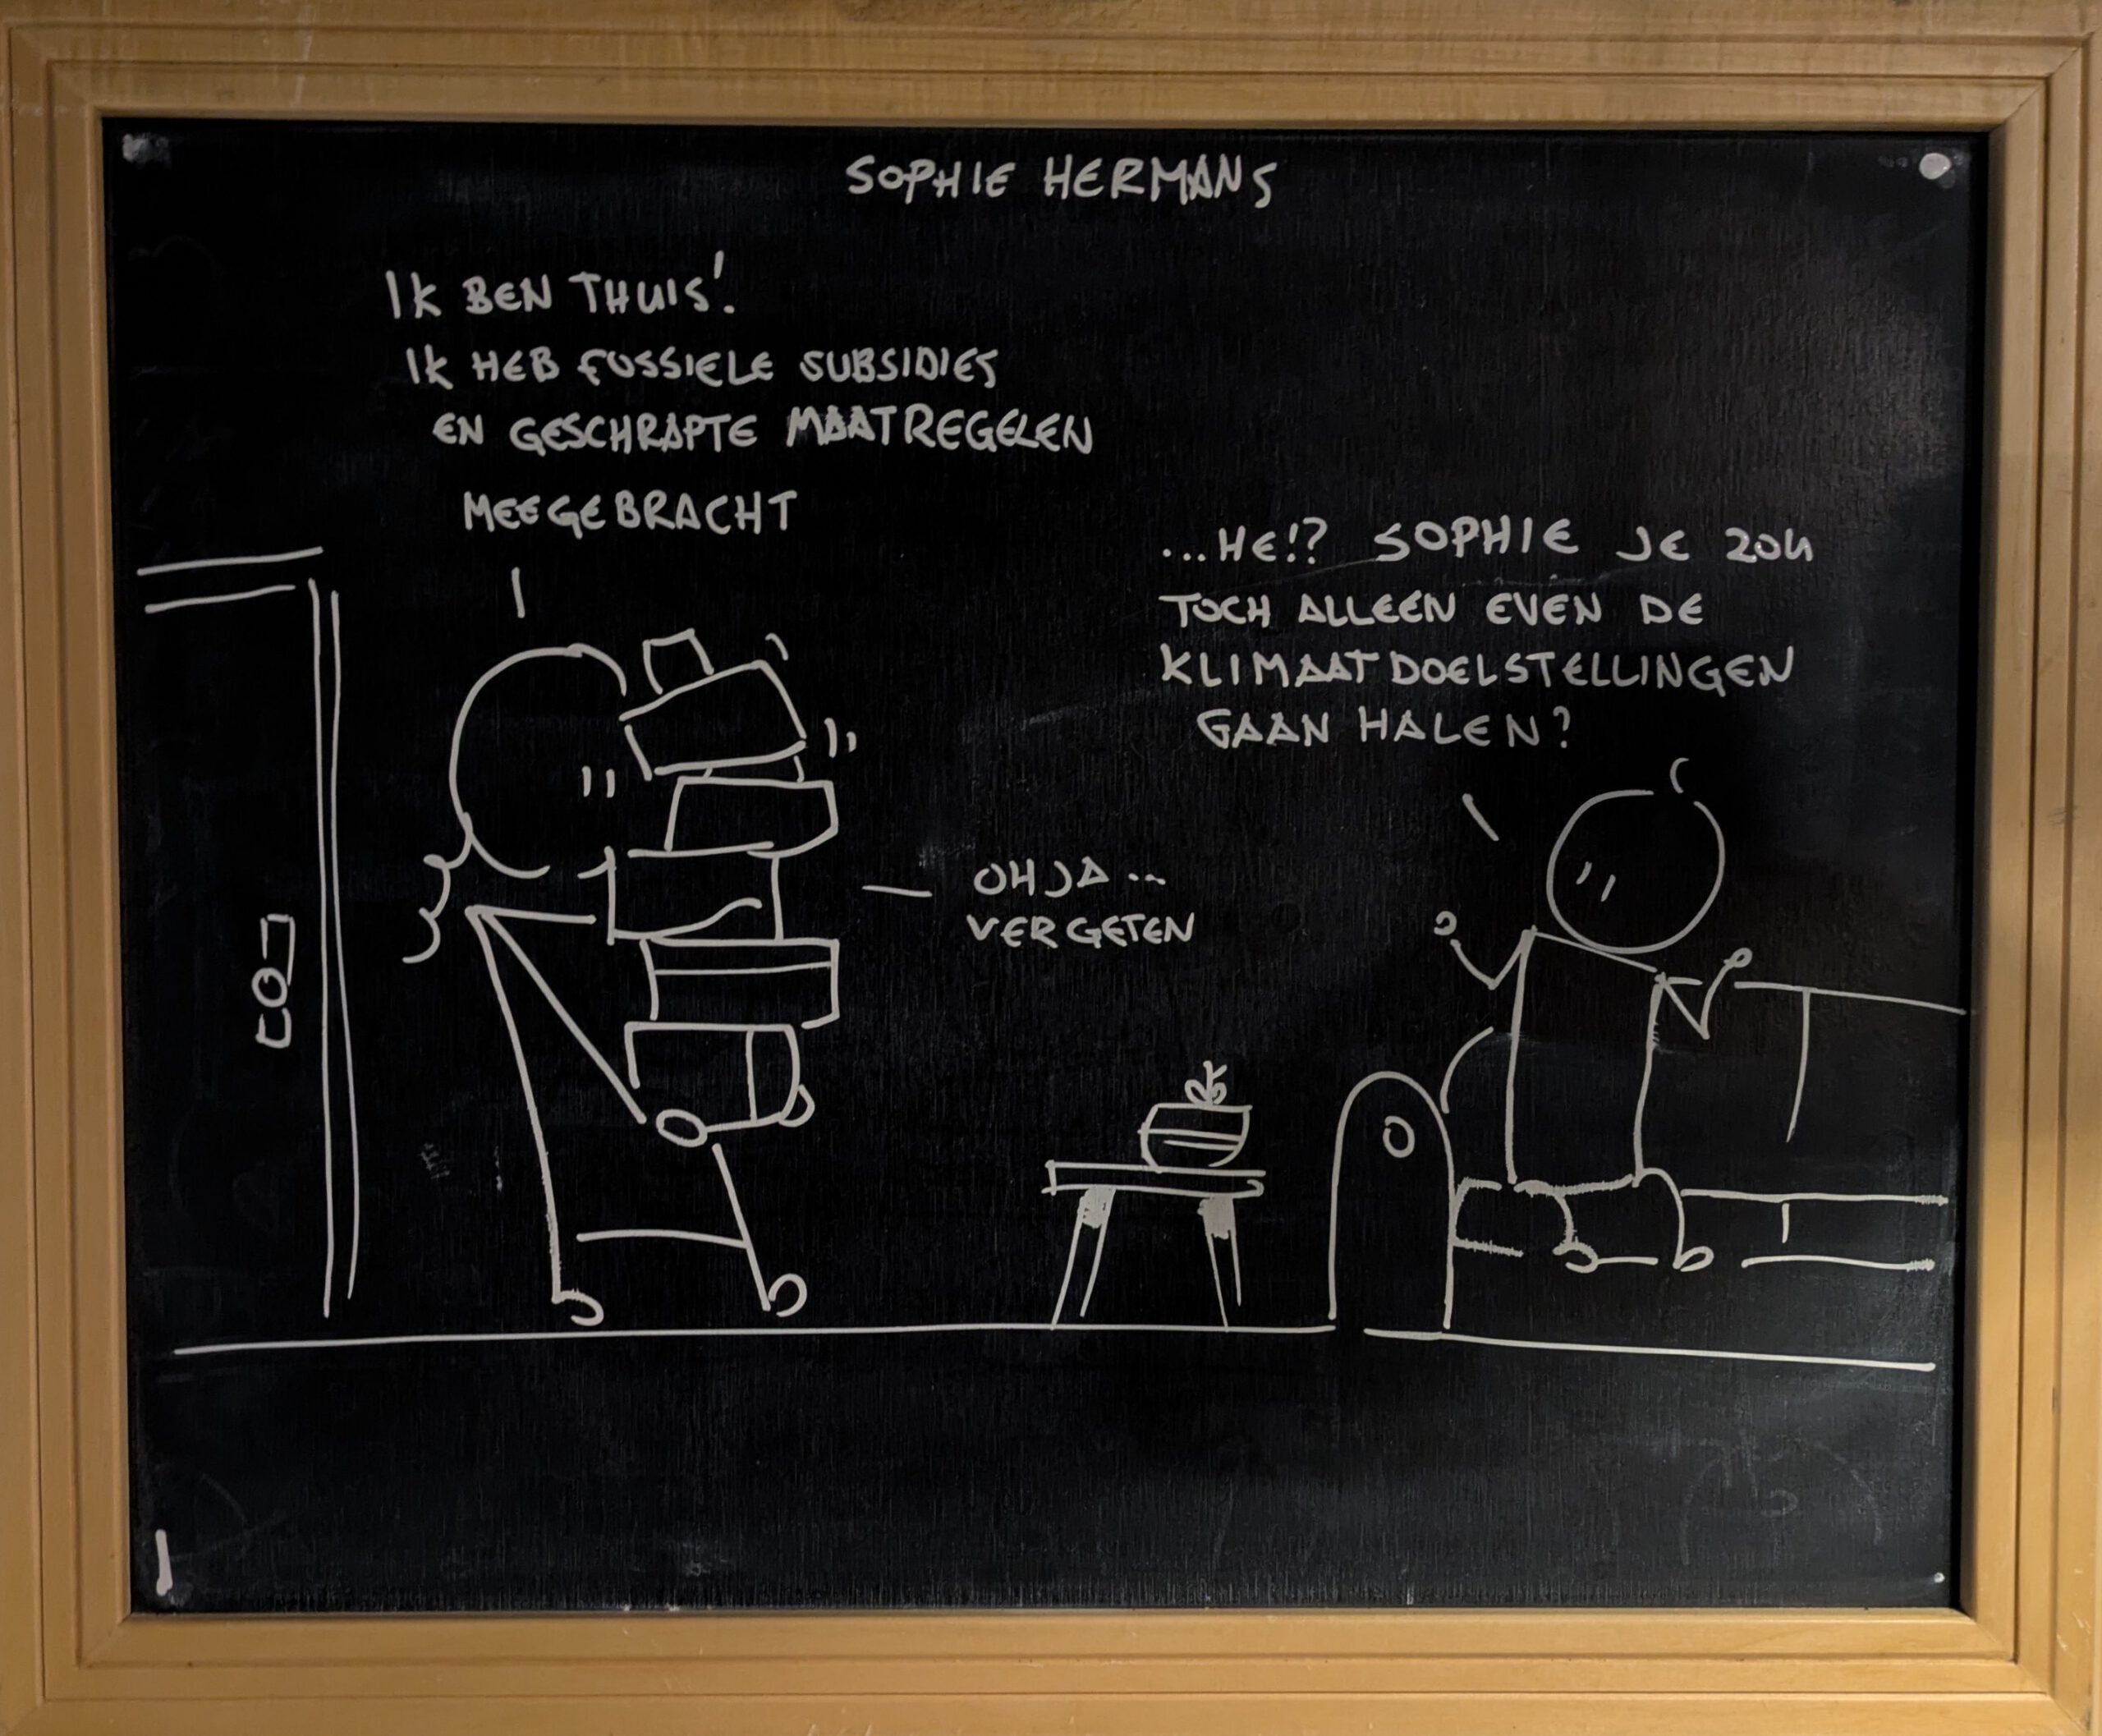 SOPHIE HERMANS
IK BEN THUIS!
IK HEB FOSSIELE SUBSIDIES
EN GESCHRAPTE MAATREGELEN
MEEGEBRACHT
...HE!? SOPHIE JE ZOU
TOCH ALLEEN EVEN DE
KLIMAATDOELSTELLINGEN
GAAN HALEN?
OH JA...
VERGETEN